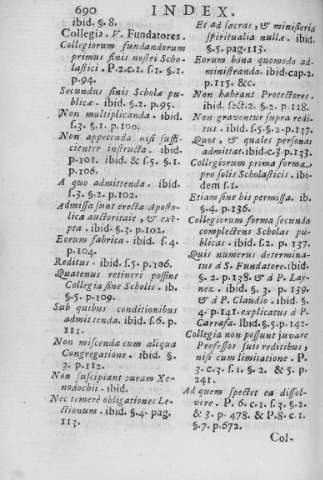 690 INDEX.
ibid. §. 8.
Collegia. V. Fundatores.
Collegiorum fundandorum
primus finis nostri Scho-
lastici. P.2.c.1. s.1. §.1.
p.94.
Secundus finis Scholæ pu-
blicæ. ibid. §.2. p.95.
Non multiplicanda. ibid.
s.3. §.1. p.100.
Non appetenda nisi suffi-
cienter instructa. ibid.
p.101. ibid. & s.5. §.1.
p.106.
A quo admittenda. ibid.
s.3. §.2. p.102.
Admissa sunt erecta Aposto-
lica auctoritate, & exe-
pta. ibid. §.3. p.102.
Eorum fabrica. ibid. s.4.
p.104.
Reditus. ibid. s.5. p.106.
Quatenus retineri possint
Collegia sine Scholis. ib.
§.5. p.109.
Sub quibus conditionibus
admittenda. ibid. s.6. p.
111.
Non miscenda cum aliqua
Congregatione. ibid. §.
3. p.112.
Non suscipiant curam Xe-
nodochii. ibid.
Nec temerè obligationes Le-
ctionum. ibid. §.4. pag.
113.
Et ad sacras, & ministeria
spiritualia nullæ. ibid.
§.5. pag. 113.
Eorum bona quomodo ad-
ministranda. ibid. cap.2.
p.115. &c.
Non habeant Protectores.
ibid. sect.2. §.2. p.128.
Non graventur supra redi-
tus. ibid. s.5. §.2. p.137.
Quot, & quales personas
admittat. ibid. c.3 p.133.
Collegiorum prima forma
pro solis Scholasticis. ibi-
dem s.1.
Etiam sine his permissa. ib.
§.4. p.136.
Collegiorum forma secunda
complectens Scholas pu-
blicas. ibid. s.2. p.137.
Quis numerus determina-
tus à S. Fundatore. ibid.
§.2. p.138. & à P. Lay-
nez. ibid. §.3. p.139.
& à P. Claudio. ibid. §.
4. p.141. explicatus à P.
Carrafa. Ibid. §.5. p.142.
Collegia non possunt juvare
Professos suis reditibus,
nisi cum limitatione. P.
3. c.3. s.1. §.2. & 5. p.
241.
Ad quem spectet ea dissol-
vere. P.6. c.1. s.3. §.2.
& 3. p. 478. & P.8. c.1.
§.7. p.672.
Col-